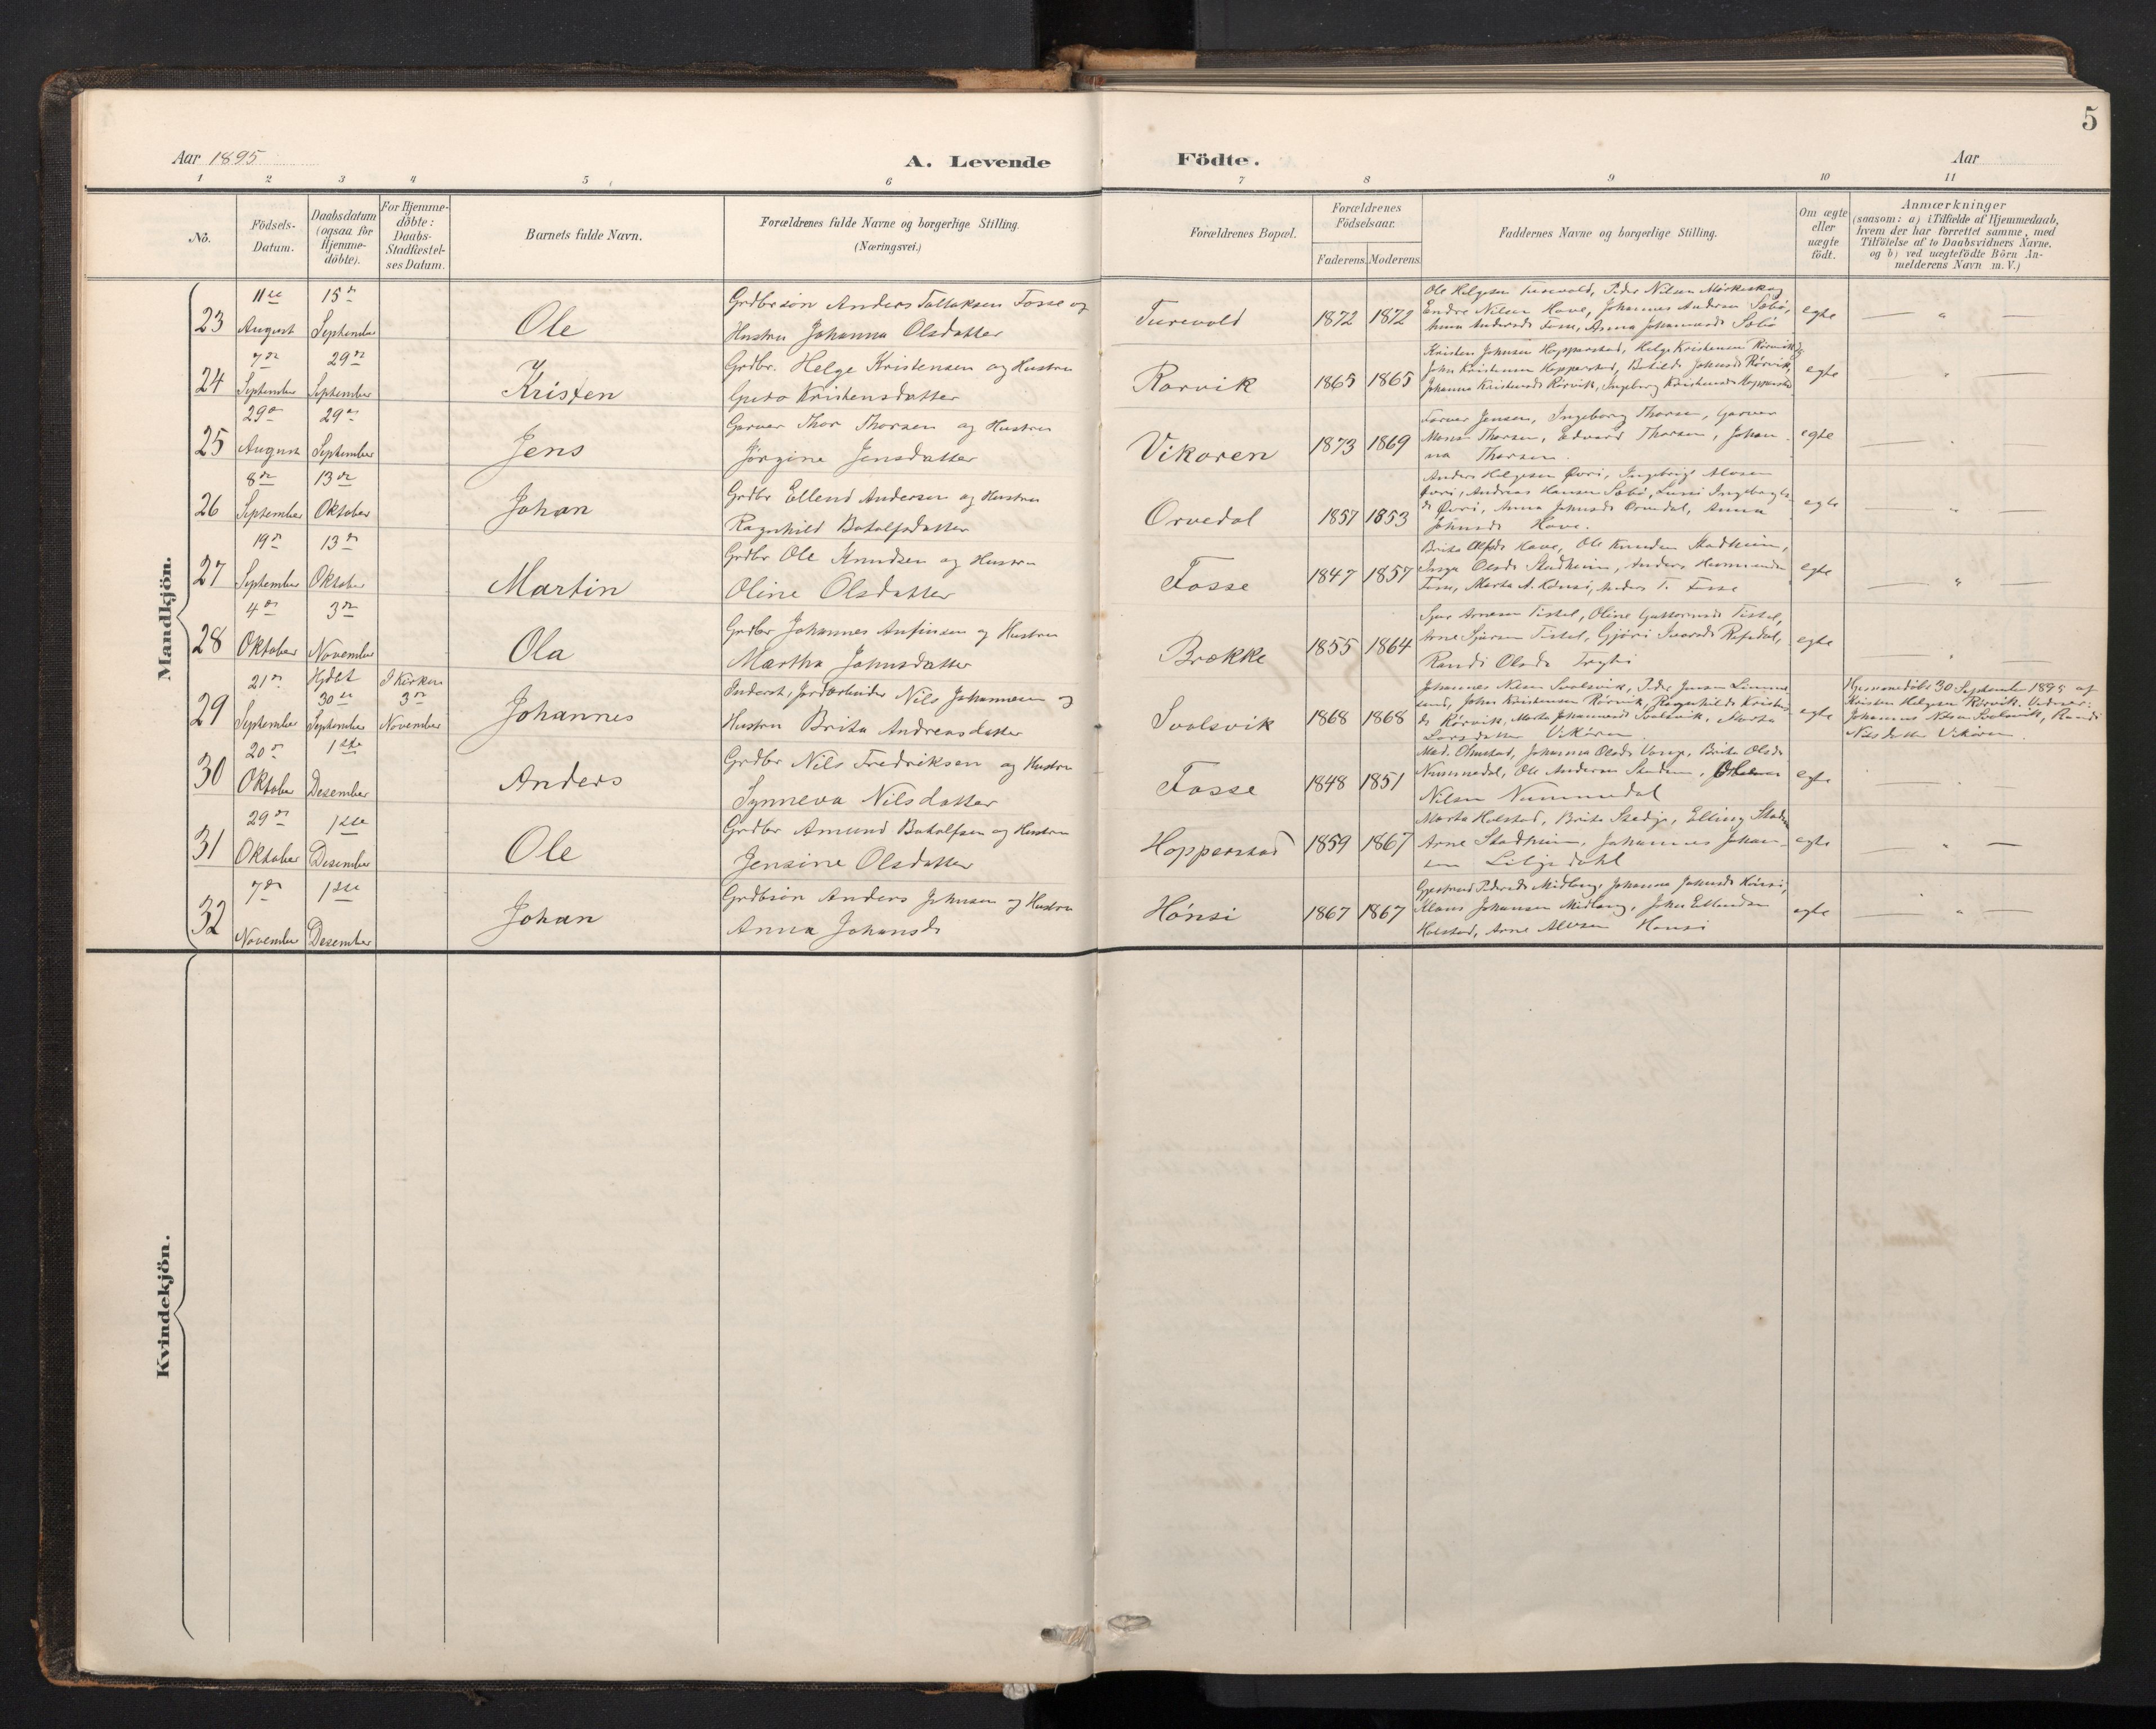 5
Aar 1895
A. Levende Födte.
Aar
1 2 3 4 5 6 7 8 9 10 11
No.
Födsels-
Datum.
Daabsdatum
(ogsaa for
Hjemme-
döbte).
For Hjemme-
döbte:
Daabs-
Stadfæstel-
ses Datum.
Barnets fulde Navn.
Forældrenes fulde Navne og borgerlige Stilling.
(Næringsvei.)
Forældrenes Bopæl.
Forældrenes
Födselsaar.
Faderens. Moderens.
Faddernes Navne og borgerlige Stilling.
Om ægte
eller
uægte
födt.
Anmærkninger
(saasom: a) i Tilfælde af Hjemmedaab,
hvem der har forrettet samme, med
Tilföielse af to Daabsvidners Navne,
og b) ved uægtefödte Börn An-
melderens Navn m. V.)
Mandkjön.
23
11te August
15de September
Ole
Grdbrsøn Anders Tollaksen Fosse og
Hustru Johanna Olsdatter
Turevold
1872 1872
Ole Helgesen Turevold, Peder Nilsen Mörkeskog
Endre Nilsen Hove, Johannes Andersen Sæbö,
Anna Andersd. Fosse, Anna Johannesd. Sæbö
egte
24
7de September
29de September
Kristen
Grdbr. Helge Kristensen og Hustru
Guro Kristensdatter
Rørvik
1865 1865
Kristen Johnsen Hopperstad, Helge Kristensen Rörvik
John Kristensen Hopperstad, Botilde Johansd. Rörvik,
Johanna Kristensd. Rörvik, Ingeborg Kristensd. Hopperstad
egte
25
29de August
29de September
Jens
Garver Thor Thorsen og Hustru
Jørgine Jensdatter
Vikøren
1873 1869
Farver Jensen, Ingeborg Thorsen, Garver
Mons Thorsen, Edvard Thorsen, Johan-
na Thorsen.
egte
26
8de September
13de Oktober
Johan
Grdbr Ellend Andersen og Hustru
Ragnhild Botolfsdatter
Orvedal
1857 1853
Anders Helgesen Øvri, Ingebrigt
Øvri, Andreas Hansen Sæbö, Ingebrigts-
d. Øvri, Anna Johnsd. Orvedal, Anna
Johnsd. Hove.
egte
27
19de September
13de Oktober
Martin
Grdbr Ole Knudsen og Hustru
Oline Olsdatter
Fosse
1847 1857
Brita Hove, Ole Knudsen Stadheim,
Inga Olsd. Stadheim, Anders
Fosse, Marta A. Hönsi, Anders T. Fosse
egte
28
4de Oktober
3de November
Ola
Grdbr Johannes Anfinsen og Hustru
Martha Johnsdatter
Brække
1855 1864
Sjur Arnesen Tistel, Oline Guttormsd. Tistel,
Arne Sjursen Tistel, Gjöri Ivarsd. Refsdal,
Randi Olsd.
egte
29
21de September
Hjdbt 30te September
I Kirken 3de November
Johannes
Inderst, Jordarbeider Nils Johannesen og
Hustru Brita Andreasdatter
Svolsvik
1868 1868
Johannes Nilsen Svolsvik, Peder Jensen
John Kristensen Rörvik, Ragnhild Kristens-
d. Rörvik, Marta Johannesd. Svolsvik, Marta
Larsdatter Vikören
egte
Hjemmedöbt 30 September 1895 af
Kristen Helgesen Rörvik. Vidner:
Johannes Nilsen Svolsvik, Randi
Nilsdatter Vikören
30
20de Oktober
1ste Desember
Anders
Grdbr Nils Fredriksen og Hustru
Synneva Nilsdatter
Fosse
1848 1851
Mad. Ohnstad, Johanna Olsd. Brita Olsd.
Nummedal, Ole Andersen
Nilsen Nummedal
egte
31
29de Oktober
1ste Desember
Ole
Grdbr Amund Botolfsen og Hustru
Jensine Olsdatter
Hopperstad
1859 1867
Marta Holstad, Brita Stedje, Elling
Arne Stadheim, Johannes Johan-
sen Liljedahl
egte
32
7de November
1ste Desember
Johan
Grdbrsøn Anders Johnsen og Hustru
Anna Johansd.
Hönsi
1867 1867
Gjertrud Pedersd. Midlang, Johanna Johansd. Hönsi,
Klaus Johansen Midlang, John Ellendsen
Holstad, Arne Hönsi
egte
Kvindekjön.